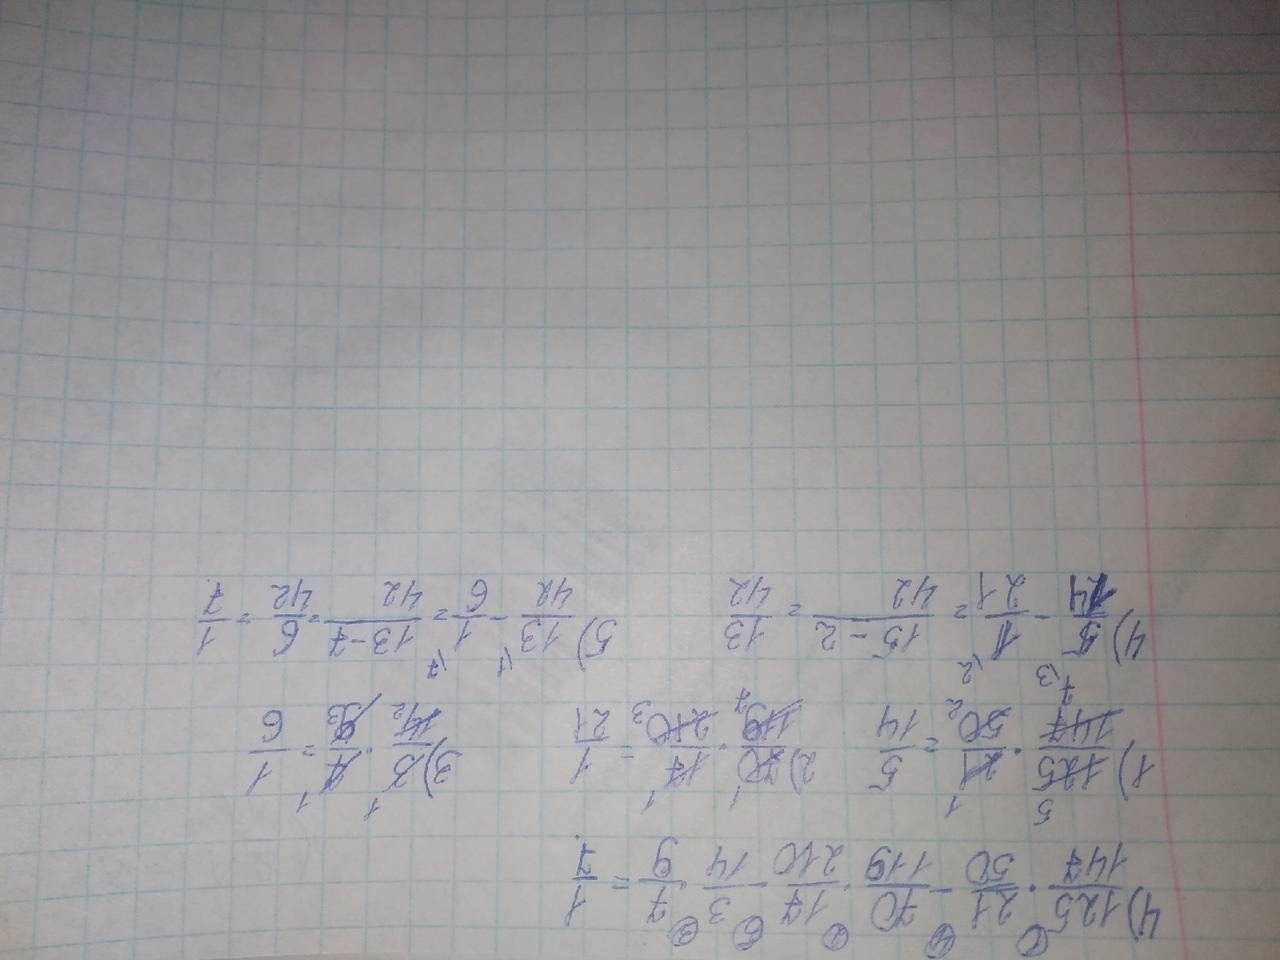 ① ④ ② ⑤ ③
4) 125/147 · 21/50 - 70/119 · 17/210 - 3/14 · 7/9 = 1/7
1) 125/147 · 21/50 = 5/14 2) 70/119 · 17/210 = 1/21 3) 3/14 · 7/9 = 1/6
4) 5/14 - 1/21 = 15-2/42 = 13/42 5) 13/42 - 1/6 = 13-7/42 = 6/42 = 1/7